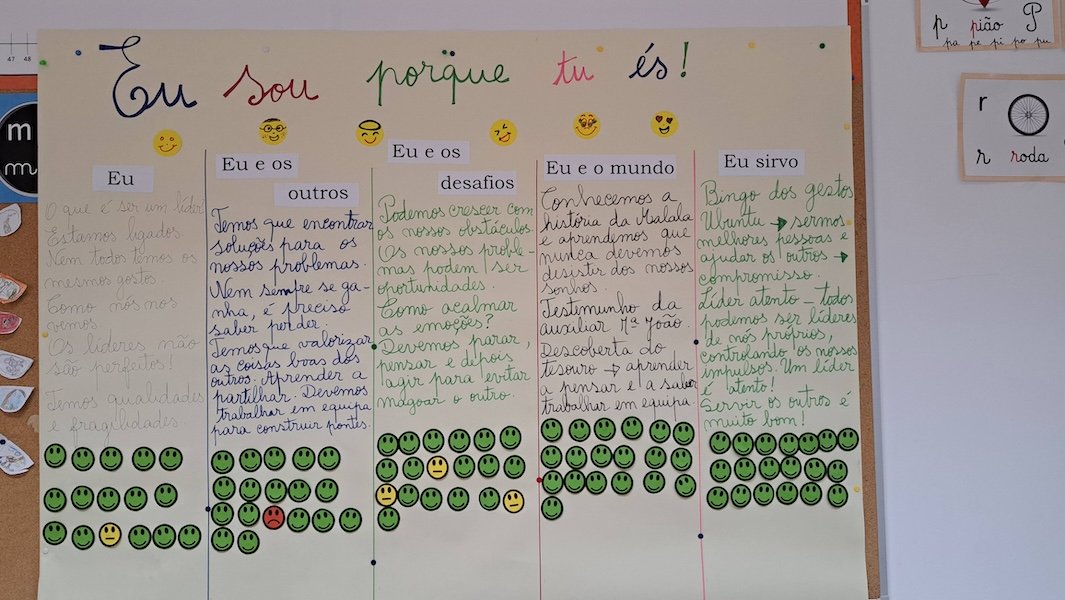 Eu sou porque tu és!
Eu
O que é ser um líder?
Estamos ligados
Nem todos temos os
mesmos gostos.
Como nós nos
vemos.
Os líderes não
são perfeitos!
Temos qualidades
e fragilidades.
Eu e os
outros
Temos que encontrar
soluções para os
nossos problemas.
Nem sempre se ga-
nha, é preciso
saber perder.
Temos que valorizar
as coisas boas dos
outros. Aprender a
partilhar. Devemos
trabalhar em equipa
para construir pontes.
Eu e os
desafios
Podemos crescer com
os nossos obstáculos.
Os nossos proble-
mas podem ser
oportunidades.
Como acalmar
as emoções?
Devemos parar,
pensar e depois
agir para evitar
magoar o outro.
Eu e o mundo
Conhecemos a
história da Malala
e aprendemos que
nunca devemos
desistir dos nossos
sonhos.
Testemunho da
auxiliar Mª João.
Descoberta do
tesouro → aprender
a pensar e a saber
trabalhar em equipa.
Eu sirvo
Bingo dos gestos
Ubuntu → sermos
melhores pessoas e
ajudar os outros →
compromisso.
Líder atento – todos
podemos ser líderes
de nós próprios,
controlando os nossos
impulsos. Um líder
é atento!
Servir os outros é
muito bom!
47 48
m
m
p pião P
pa pe pi po pu
r
r roda